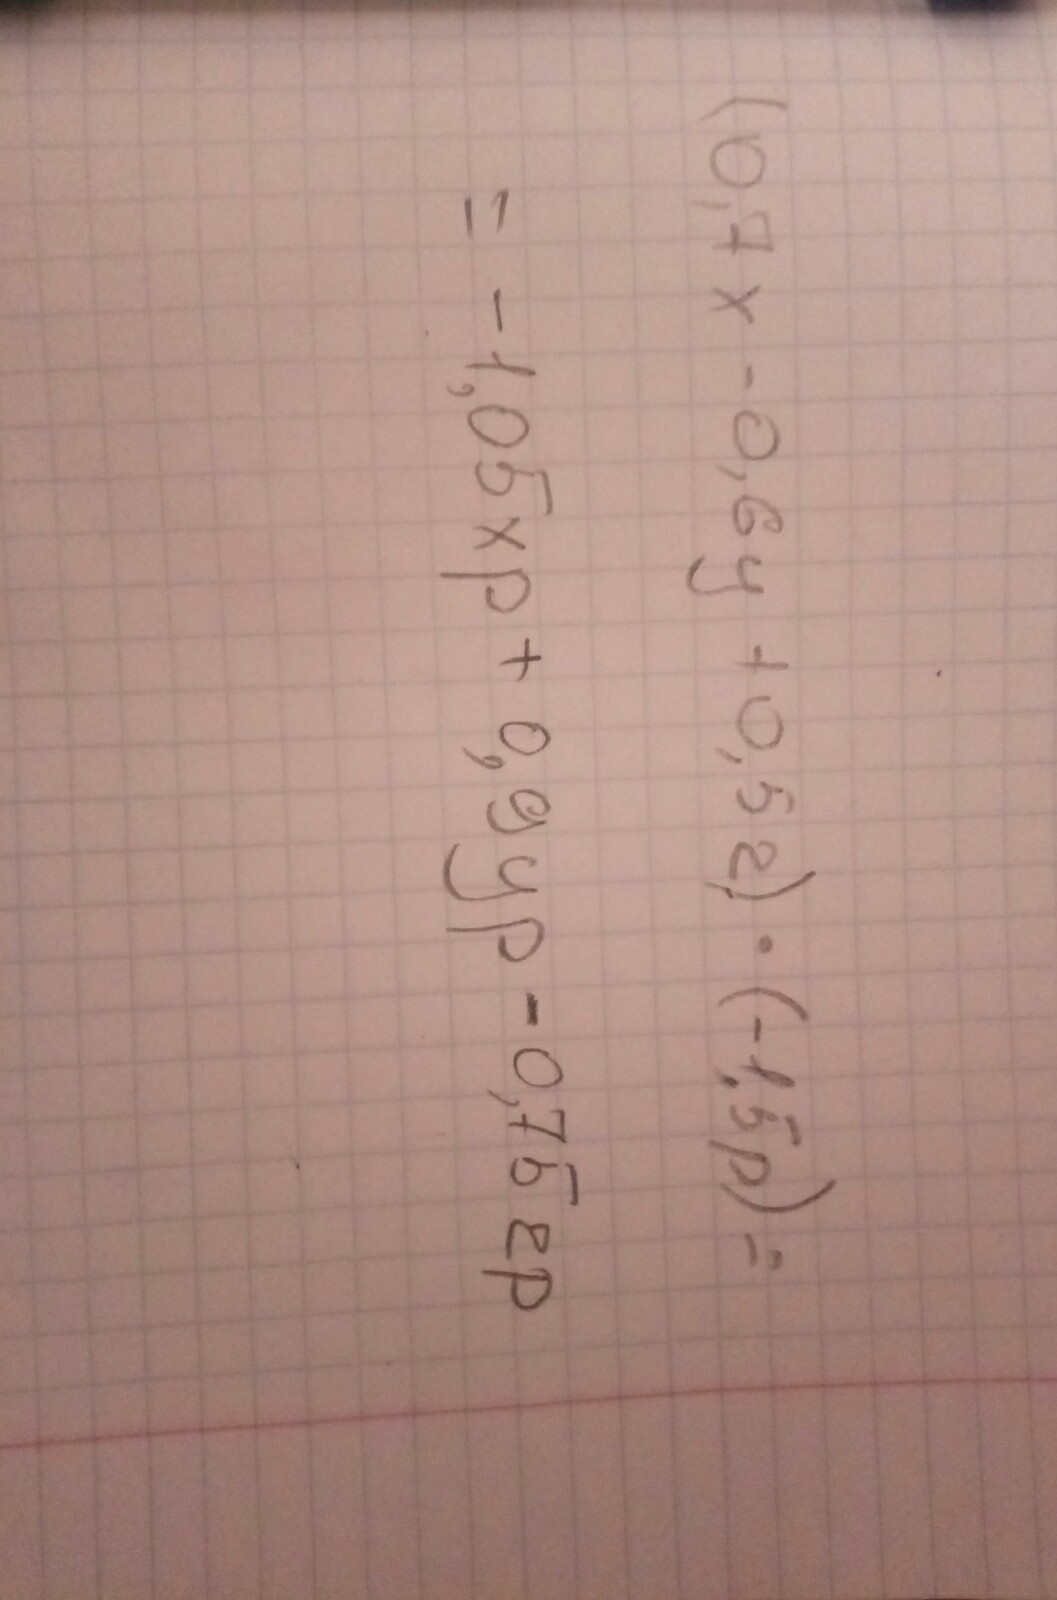 (0,7x-0,6y+0,5z)·(-1,5p)=
=-1,05xp+0,9yp-0,75zp